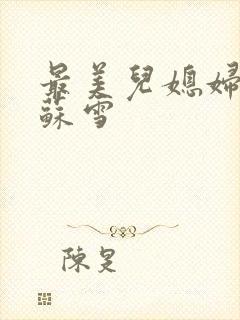 最美兒媳婦
蘇雪
陳昆